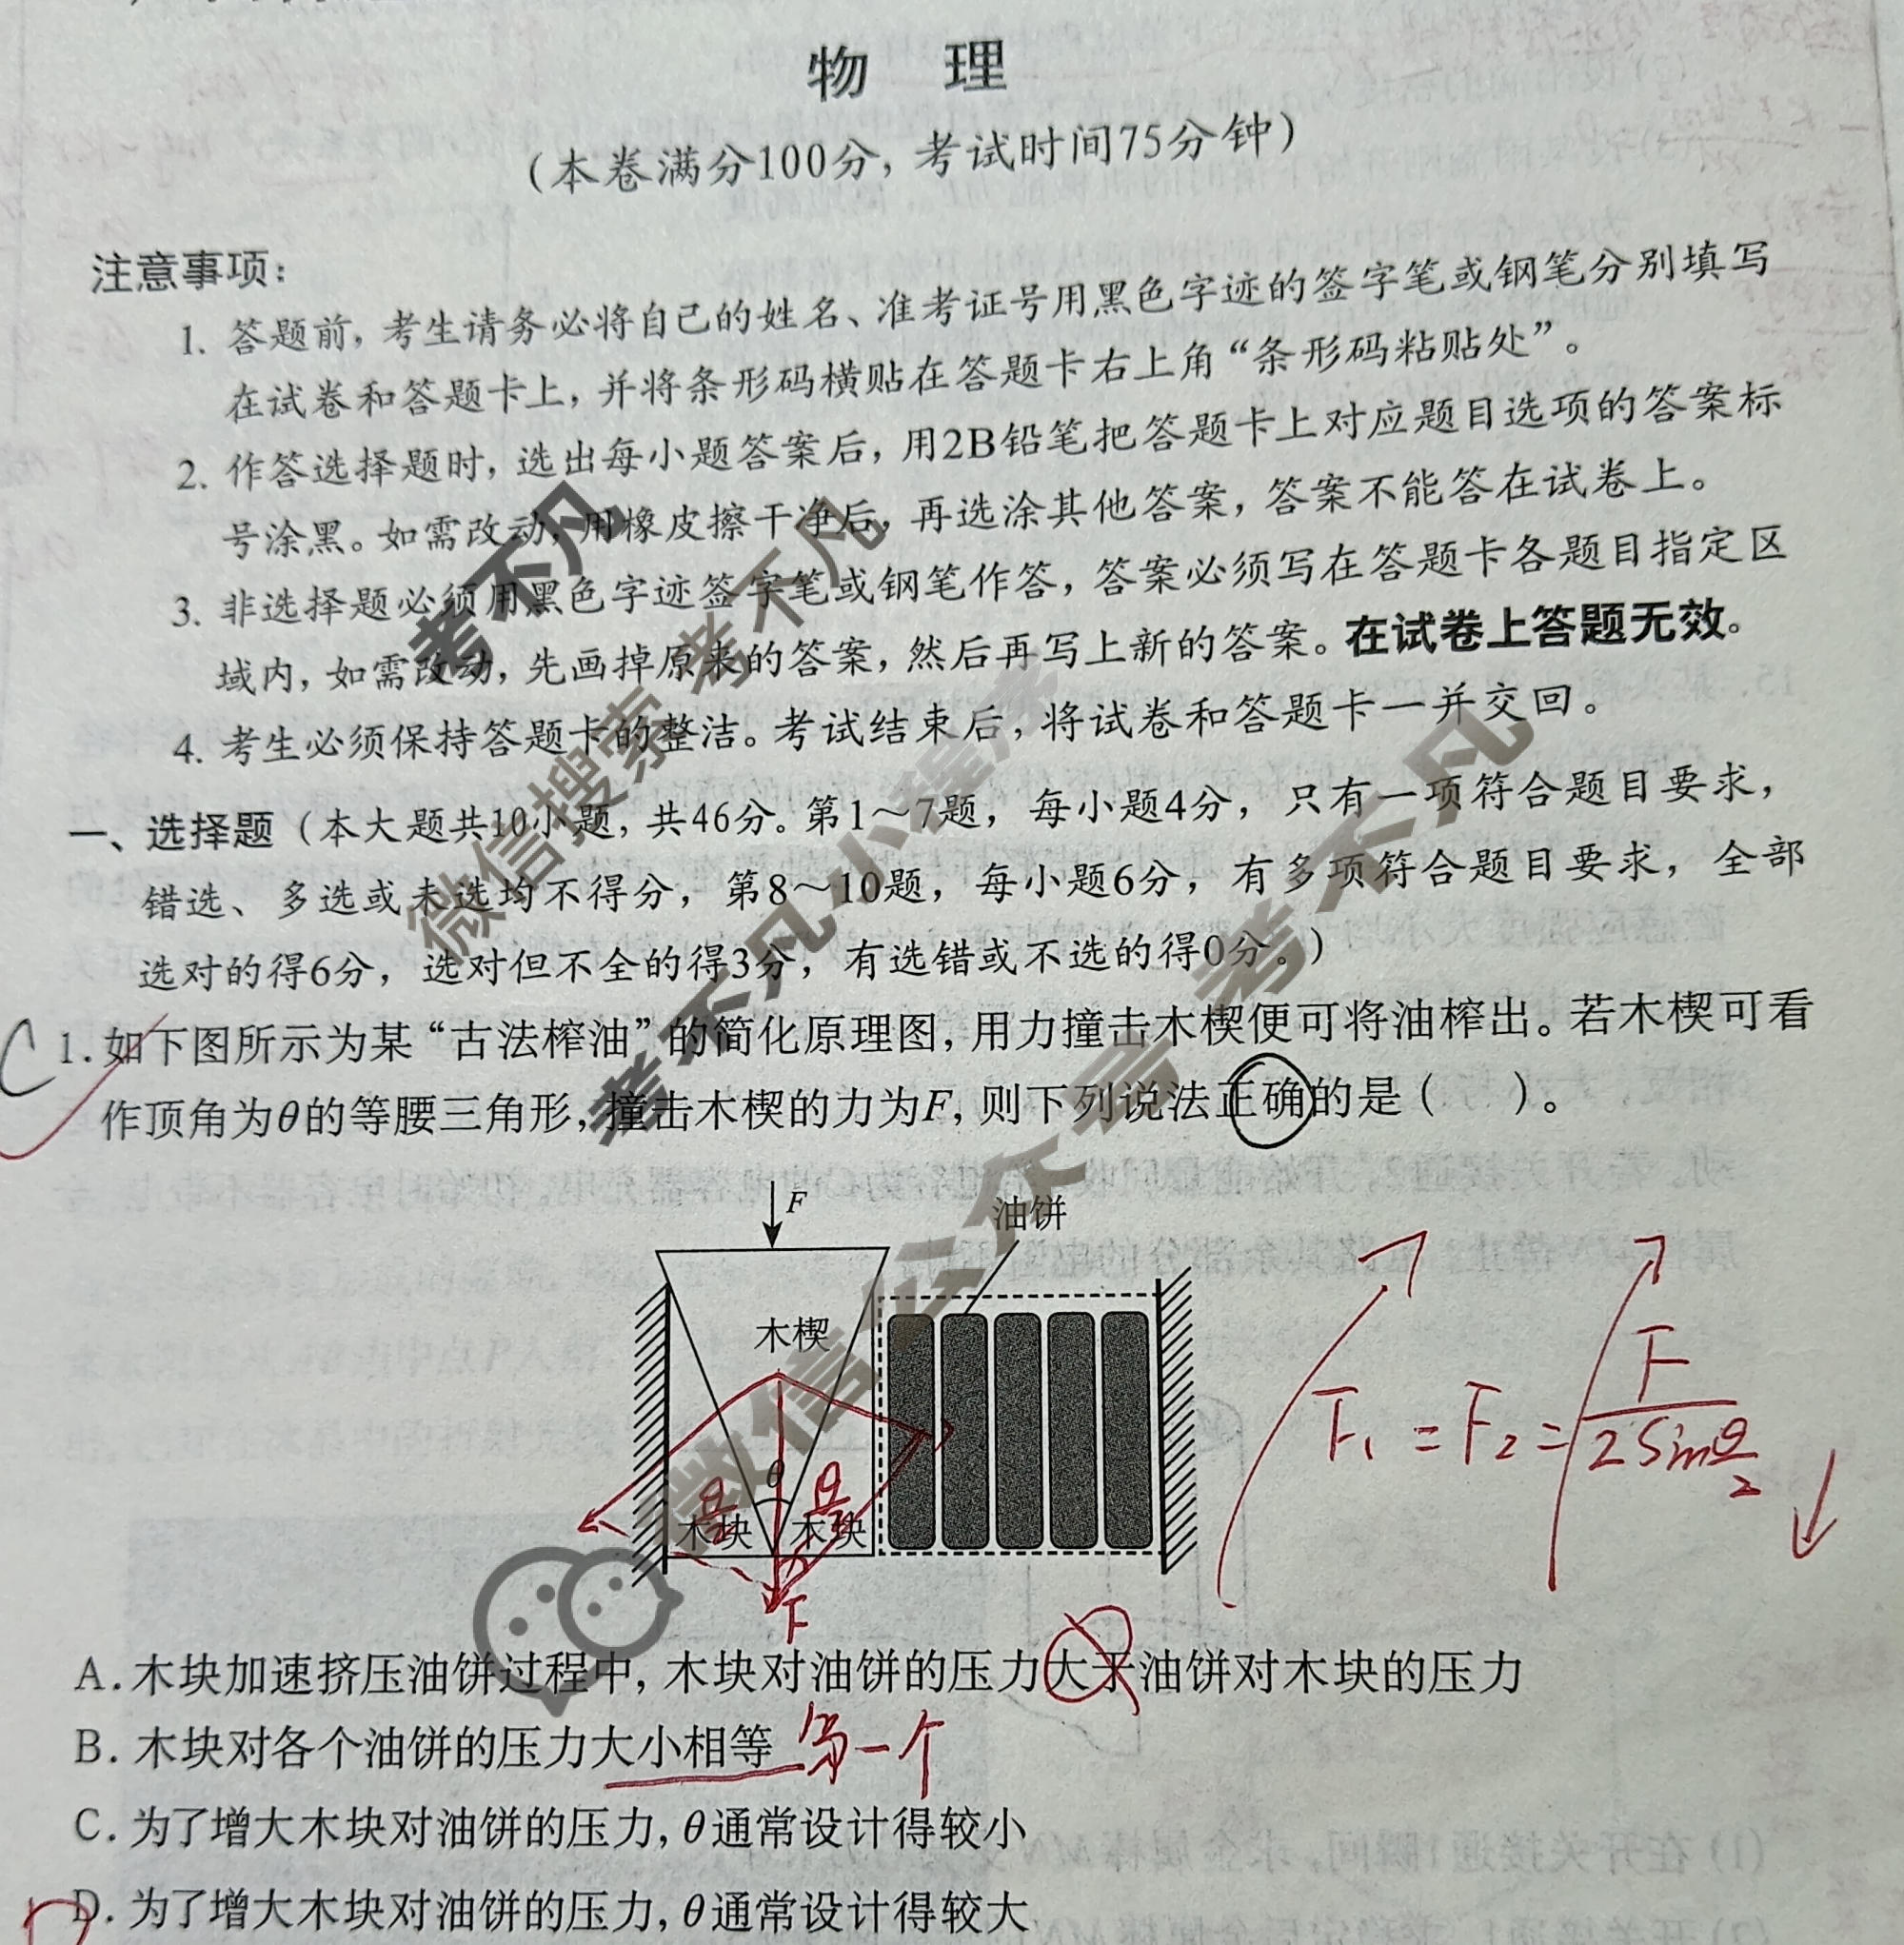 物 理
(本卷满分100分, 考试时间75分钟)
注意事项:
1. 答题前, 考生请务必将自己的姓名、准考证号用黑色字迹的签字笔或钢笔分别填写
在试卷和答题卡上, 并将条形码横贴在答题卡右上角“条形码粘贴处”。
2. 作答选择题时, 选出每小题答案后, 用2B铅笔把答题卡上对应题目选项的答案标
号涂黑。如需改动, 用橡皮擦干净后, 再选涂其他答案, 答案不能答在试卷上。
3. 非选择题必须用黑色字迹签字笔或钢笔作答, 答案必须写在答题卡各题目指定区
域内, 如需改动, 先画掉原来的答案, 然后再写上新的答案。在试卷上答题无效。
4. 考生必须保持答题卡的整洁。考试结束后, 将试卷和答题卡一并交回。
一、选择题 (本大题共10小题, 共46分。第1～7题, 每小题4分, 只有一项符合题目要求,
错选、多选或未选均不得分, 第8～10题, 每小题6分, 有多项符合题目要求, 全部
选对的得6分, 选对但不全的得3分, 有选错或不选的得0分。)
C
1. 如下图所示为某“古法榨油”的简化原理图, 用力撞击木楔便可将油榨出。若木楔可看
作顶角为θ的等腰三角形, 撞击木楔的力为F, 则下列说法正确的是 ( )。
F
油饼
木楔
θ
θ/2 θ/2
木块 木块
F
F₁ = F₂ = F/(2 sin θ/2)
A. 木块加速挤压油饼过程中, 木块对油饼的压力大于油饼对木块的压力
B. 木块对各个油饼的压力大小相等 第一个
C. 为了增大木块对油饼的压力, θ通常设计得较小
D. 为了增大木块对油饼的压力, θ通常设计得较大
考不凡
微信搜索 考不凡
考不凡小程序
微信公众号 考不凡